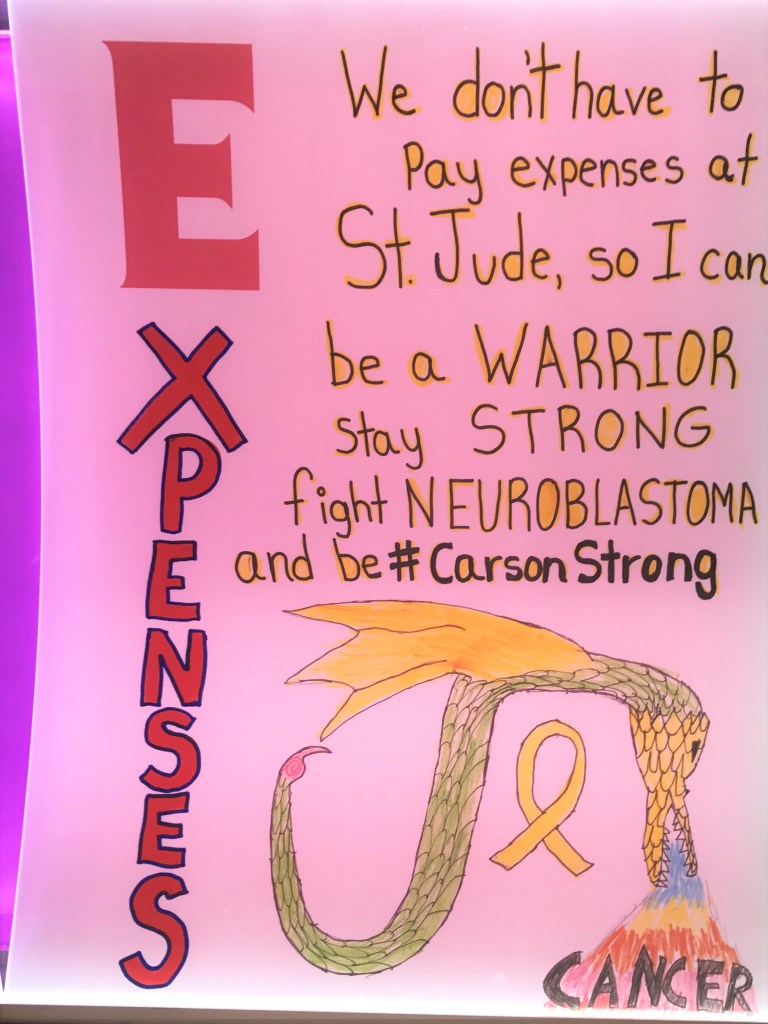 EXPENSES
We don't have to
Pay expenses at
St. Jude, so I can
be a WARRIOR
stay STRONG
fight NEUROBLASTOMA
and be #CarsonStrong
CANCER